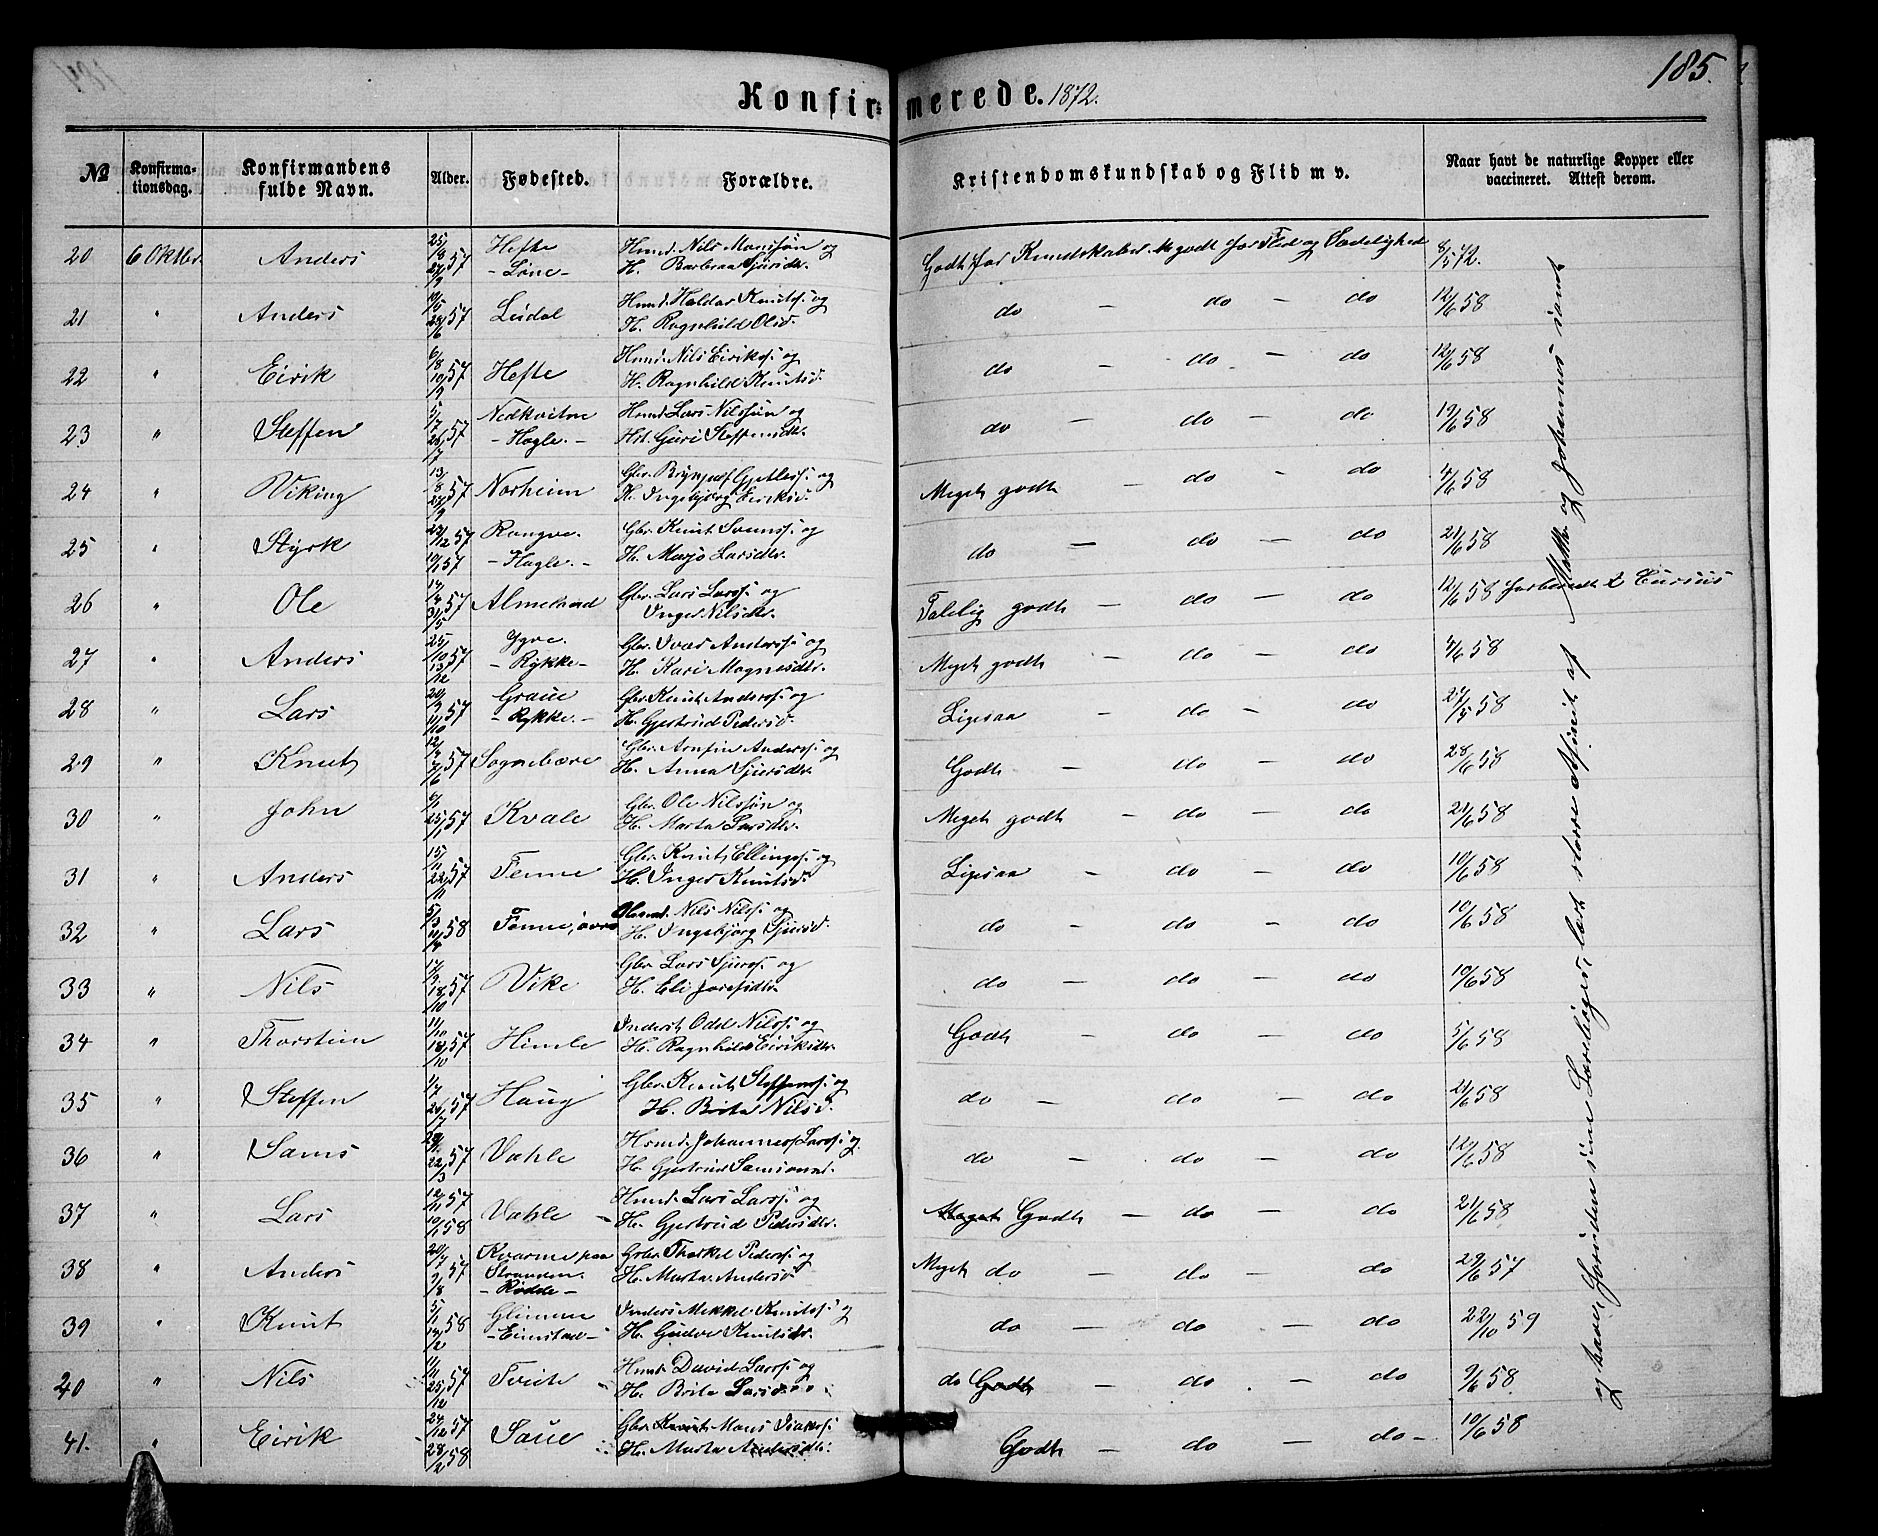 Konfirmerede. 1872.
185.
№
Konfirma-
tionsdag.
Konfirmandens
fulde Navn.
Alder.
Fødested.
Forældre.
Kristendomskundskab og Flid m v.
Naar havt de naturlige Kopper eller
vaccineret. Attest derom.
20 6 Oktbr. Anders 25/8 27/9 57 Hefte
- Løne - Husmd. Nils Monssøn og
H. Barbraa Sjursdtr. Godt for Kundskaber. M godt for Flid og Sædelighed 8/5 72.
21 " Anders 57 Lidal Husmd. Haldor Knuts. og
H. Ragnhild Olsd. do - do - do 12/6 58
22 " Eirik 6/8 10/9 57 Hefte Husmd. Nils Eiriks. og
H. Ragnhild Knutsd. do - do - do 12/6 58
23 " Steffen 5/7 26/7 57 Nedkvitne
- Hagle. - Husmd. Lars Nilssøn og
Hst. Guri Steffensdtr. do - do - do 19/6 58
24 " Viking 13/8 27/9 57 Norheim Gbr. Brynjulf Gjetles. og
H. Ingebjørg Eiriksd. Meget godt - do - do 4/6 58
25 " Styrk 57 Rongve.
- Hagle. - Gbr. Knut Svens. og
H. Marjo Larsdtr. do - do - do 21/6 58
26 " Ole 14/4 31/5 57 Almeland Gbr. Lars Larss. og
Inger Nilsdtr. Talelig godt - do - do 12/6 58 forberedt 2 Cursus
27 " Anders 25/10 13/12 57 Ygre.
- Rykke - Gbr. Ivar Anderss. og
H. Kari Magnesdtr. Meget godt - do - do 4/6 58
28 " Lars 20/9 11/10 57 Graue
- Rykke. - Gbr. Knut Anderss. og
H. Gjertrud Pedersd. Ligesaa - do - do 27/5 58
29 " Knut 57 Sognebære Gbr. Arnfin Anderss. og
H. Anna Sjursdtr. Godt - do - do 28/6 58
30 " John 57 Kvale Gbr. Ole Nilssøn og
H. Marta Larsdtr. Meget godt - do - do 21/6 58
31 " Anders 15/11 22/11 57 Fenne Gbr. Knut Ellings. og
H. Inger Knutsd. Ligesaa - do - do 10/6 58
32 " Lars 58 Fenne, øvre Nils Nils. og
H. Ingebjørg Sjursd. do - do - do 10/6 58
33 " Nils 17/9 18/10 57 Vike Gbr. Lars Sjurs. og
H. Eli Josefsdtr. do - do - do 10/6 58
34 " Thorstein 11/10 18/10 57 Himle Inderst Odd Nilss. og
H. Ragnhild Eiriksdtr. Godt - do - do 5/6 58
35 " Steffen 26/7 57 Haug Gbr. Knut Steffens. og
H. Brita Nilsd. do - do - do 21/6 58
36 " Sams 22/3 57 Vahle Husmd. Johannes Larss. og
H. Gjertrud Samsonsd. do - do - do 12/6 58
37 " Lars 12/11 57 10/1 58 Vahle - Husmd. Lars Larss. og
H. Gjertrud Pedersdtr. Meget Godt - do - do 21/6 58
38 " Anders 20/7 9/8 57 Kvarme paa
Stranden.
- Rødde - Gbr. Thorkel Peders. og
H. Marta Andersd. Meget do - do - do 29/6 57
39 " Knut 5/1 14/2 58 Glimme
- Eimstad - Inders. Mekkel Knutss. og
H. Gudve Knutsdtr. do - do - do 22/10 59
40 " Nils 11/11 25/12 57 Tvite Husmd. David Larss. og
H. Brita Larsd. do Godt - do - do 9/6 58
41. " Eirik 24/12 57 28/2 58 Saue Gbr. Knut Mons Isaks. og
H. Marta Andersdtr. Godt - do - do - 10/6 58
og have, foruden sine Lærebøger, læst større Afsnit af Matth. og Johannes samt